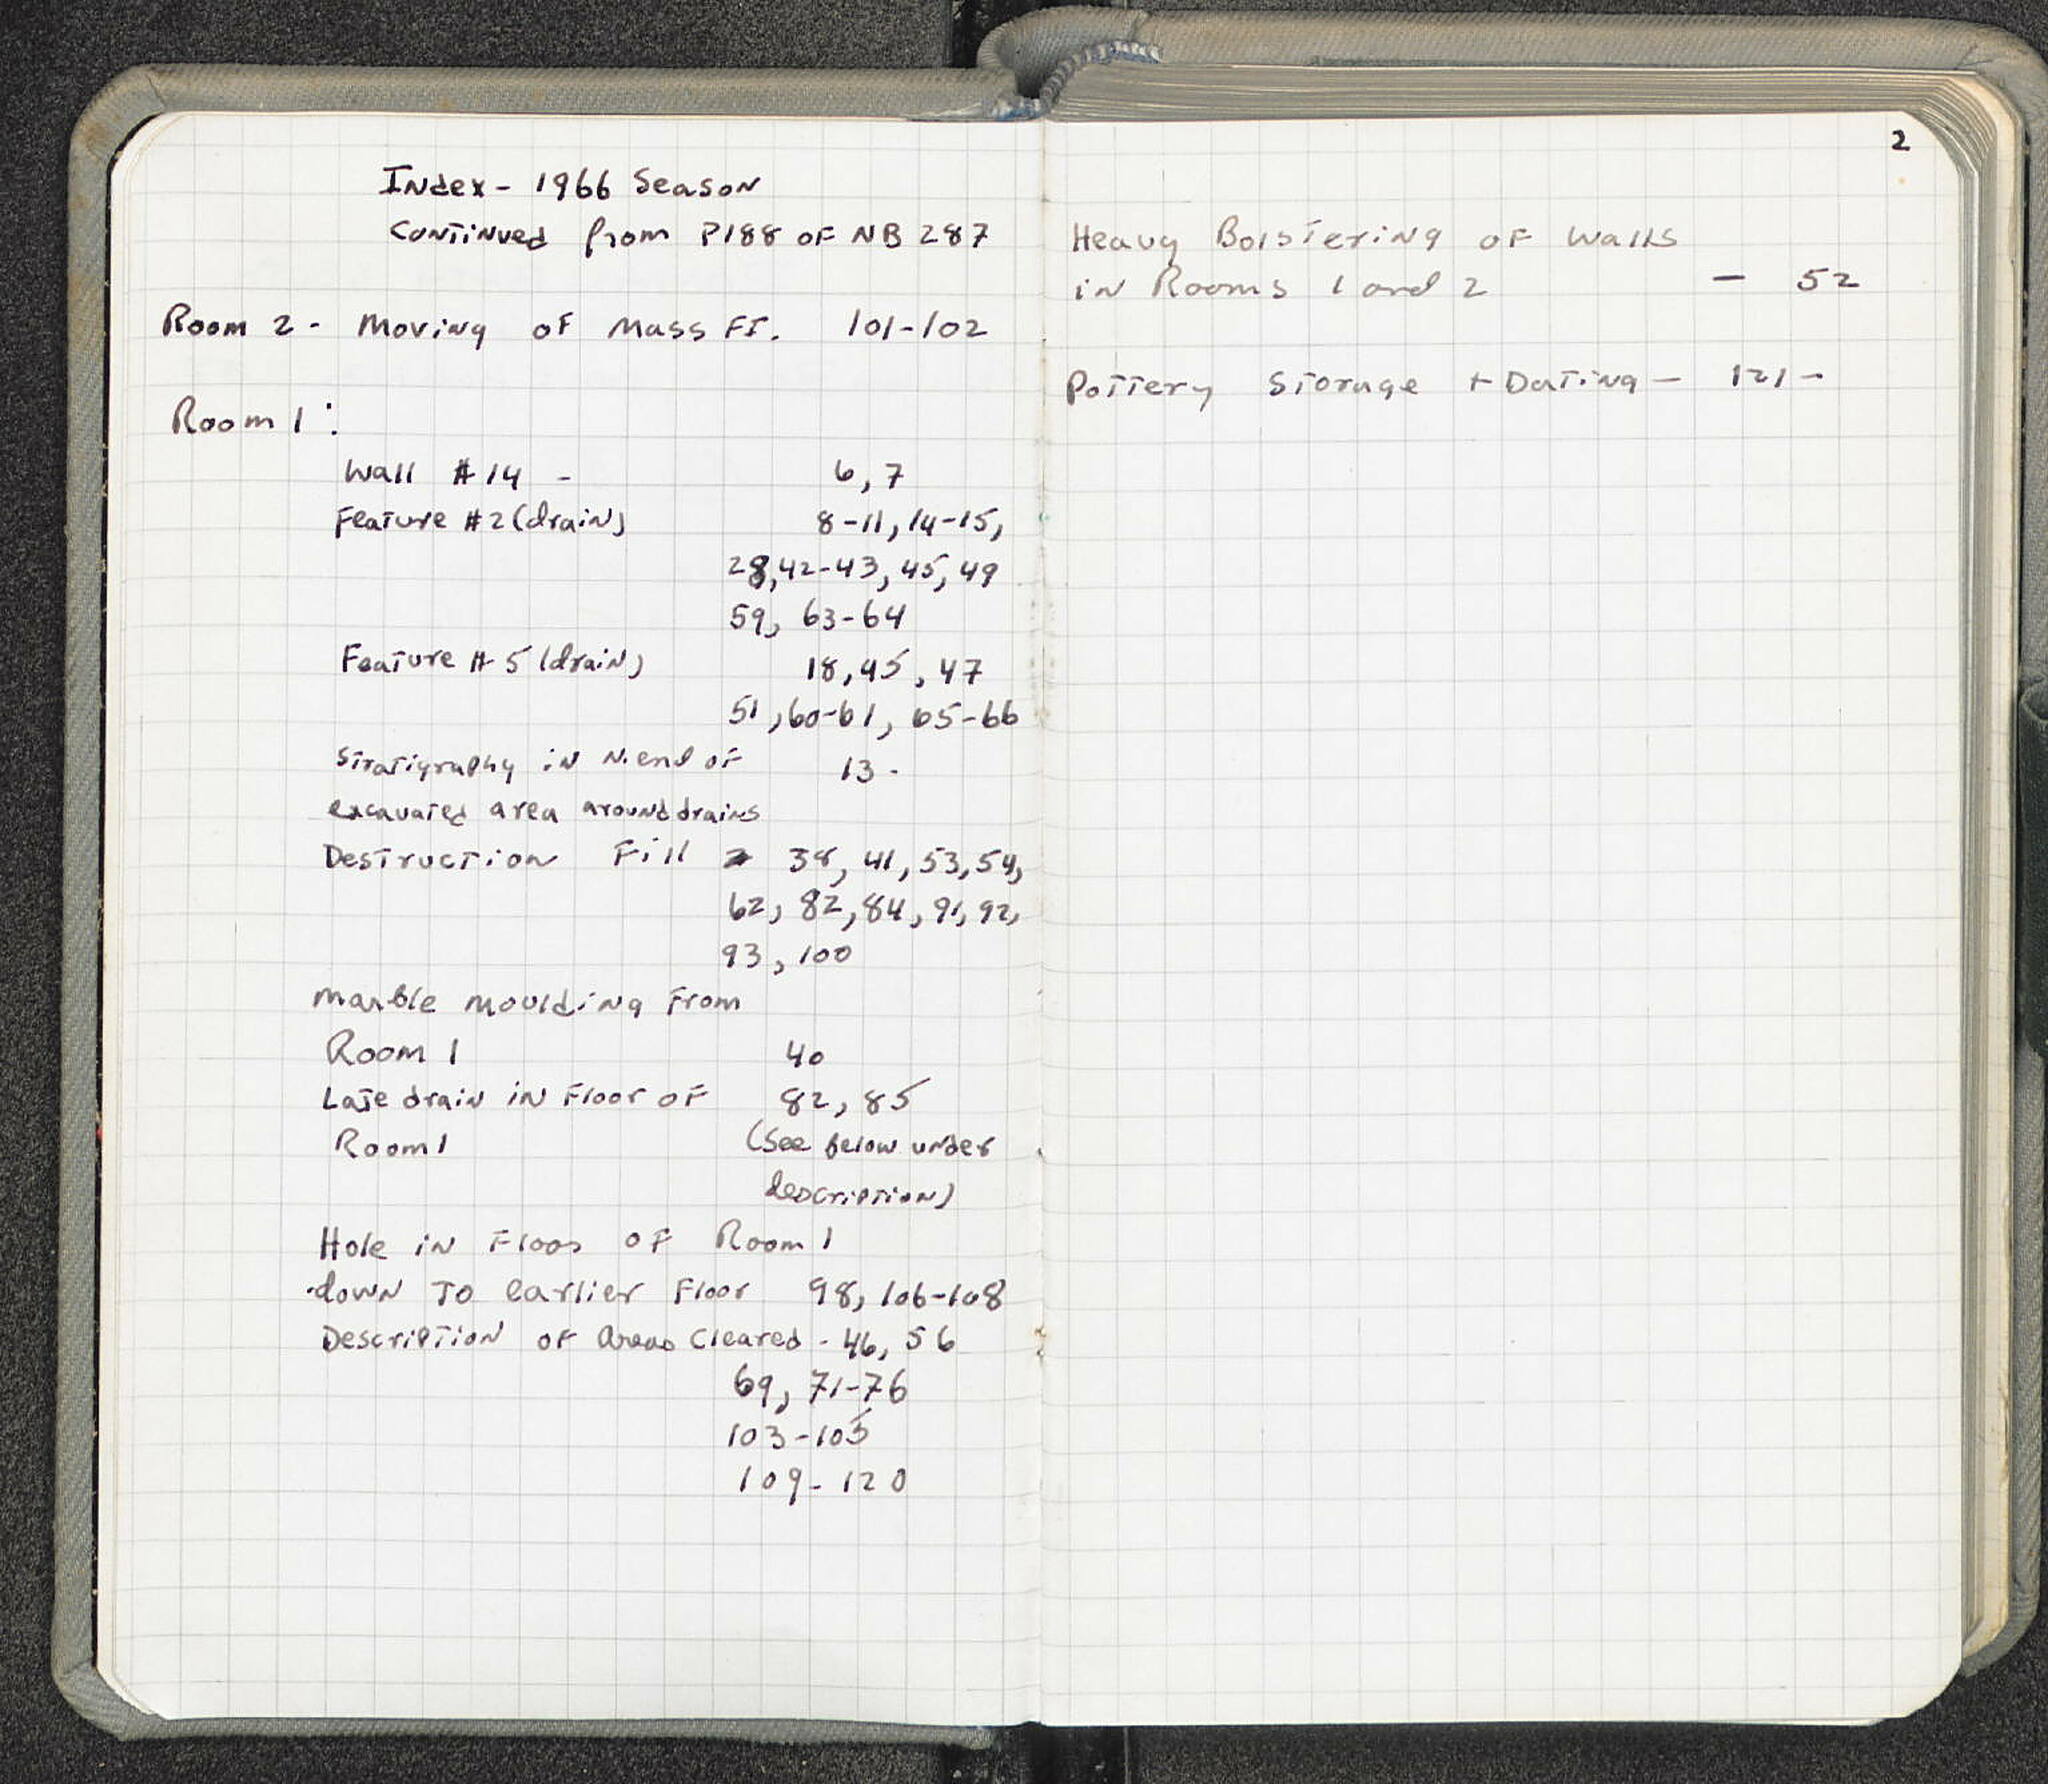 Index - 1966 Season
Continued from P188 of NB 287
Room 2 - Moving of Mass FI. 101-102
Room 1 :
Wall #14 - 6, 7
Feature #2 (drain) 8-11, 14-15,
28, 42-43, 45, 49
59, 63-64
Feature #5 (drain) 18, 45, 47
51, 60-61, 65-66
Stratigraphy in N. end of 13-
excavated area around drains
Destruction Fill 38, 41, 53, 54,
62, 82, 84, 91, 92,
93, 100
Marble moulding From
Room 1 40
Late drain in Floor of 82, 85
Room 1 (See below under
description)
Hole in Floor of Room 1
down to earlier Floor 98, 106-108
Description of areas Cleared - 46, 56
69, 71-76
103-105
109-120
2
Heavy Bolstering of Walls
in Rooms 1 and 2 - 52
Pottery Storage + Dating - 121-